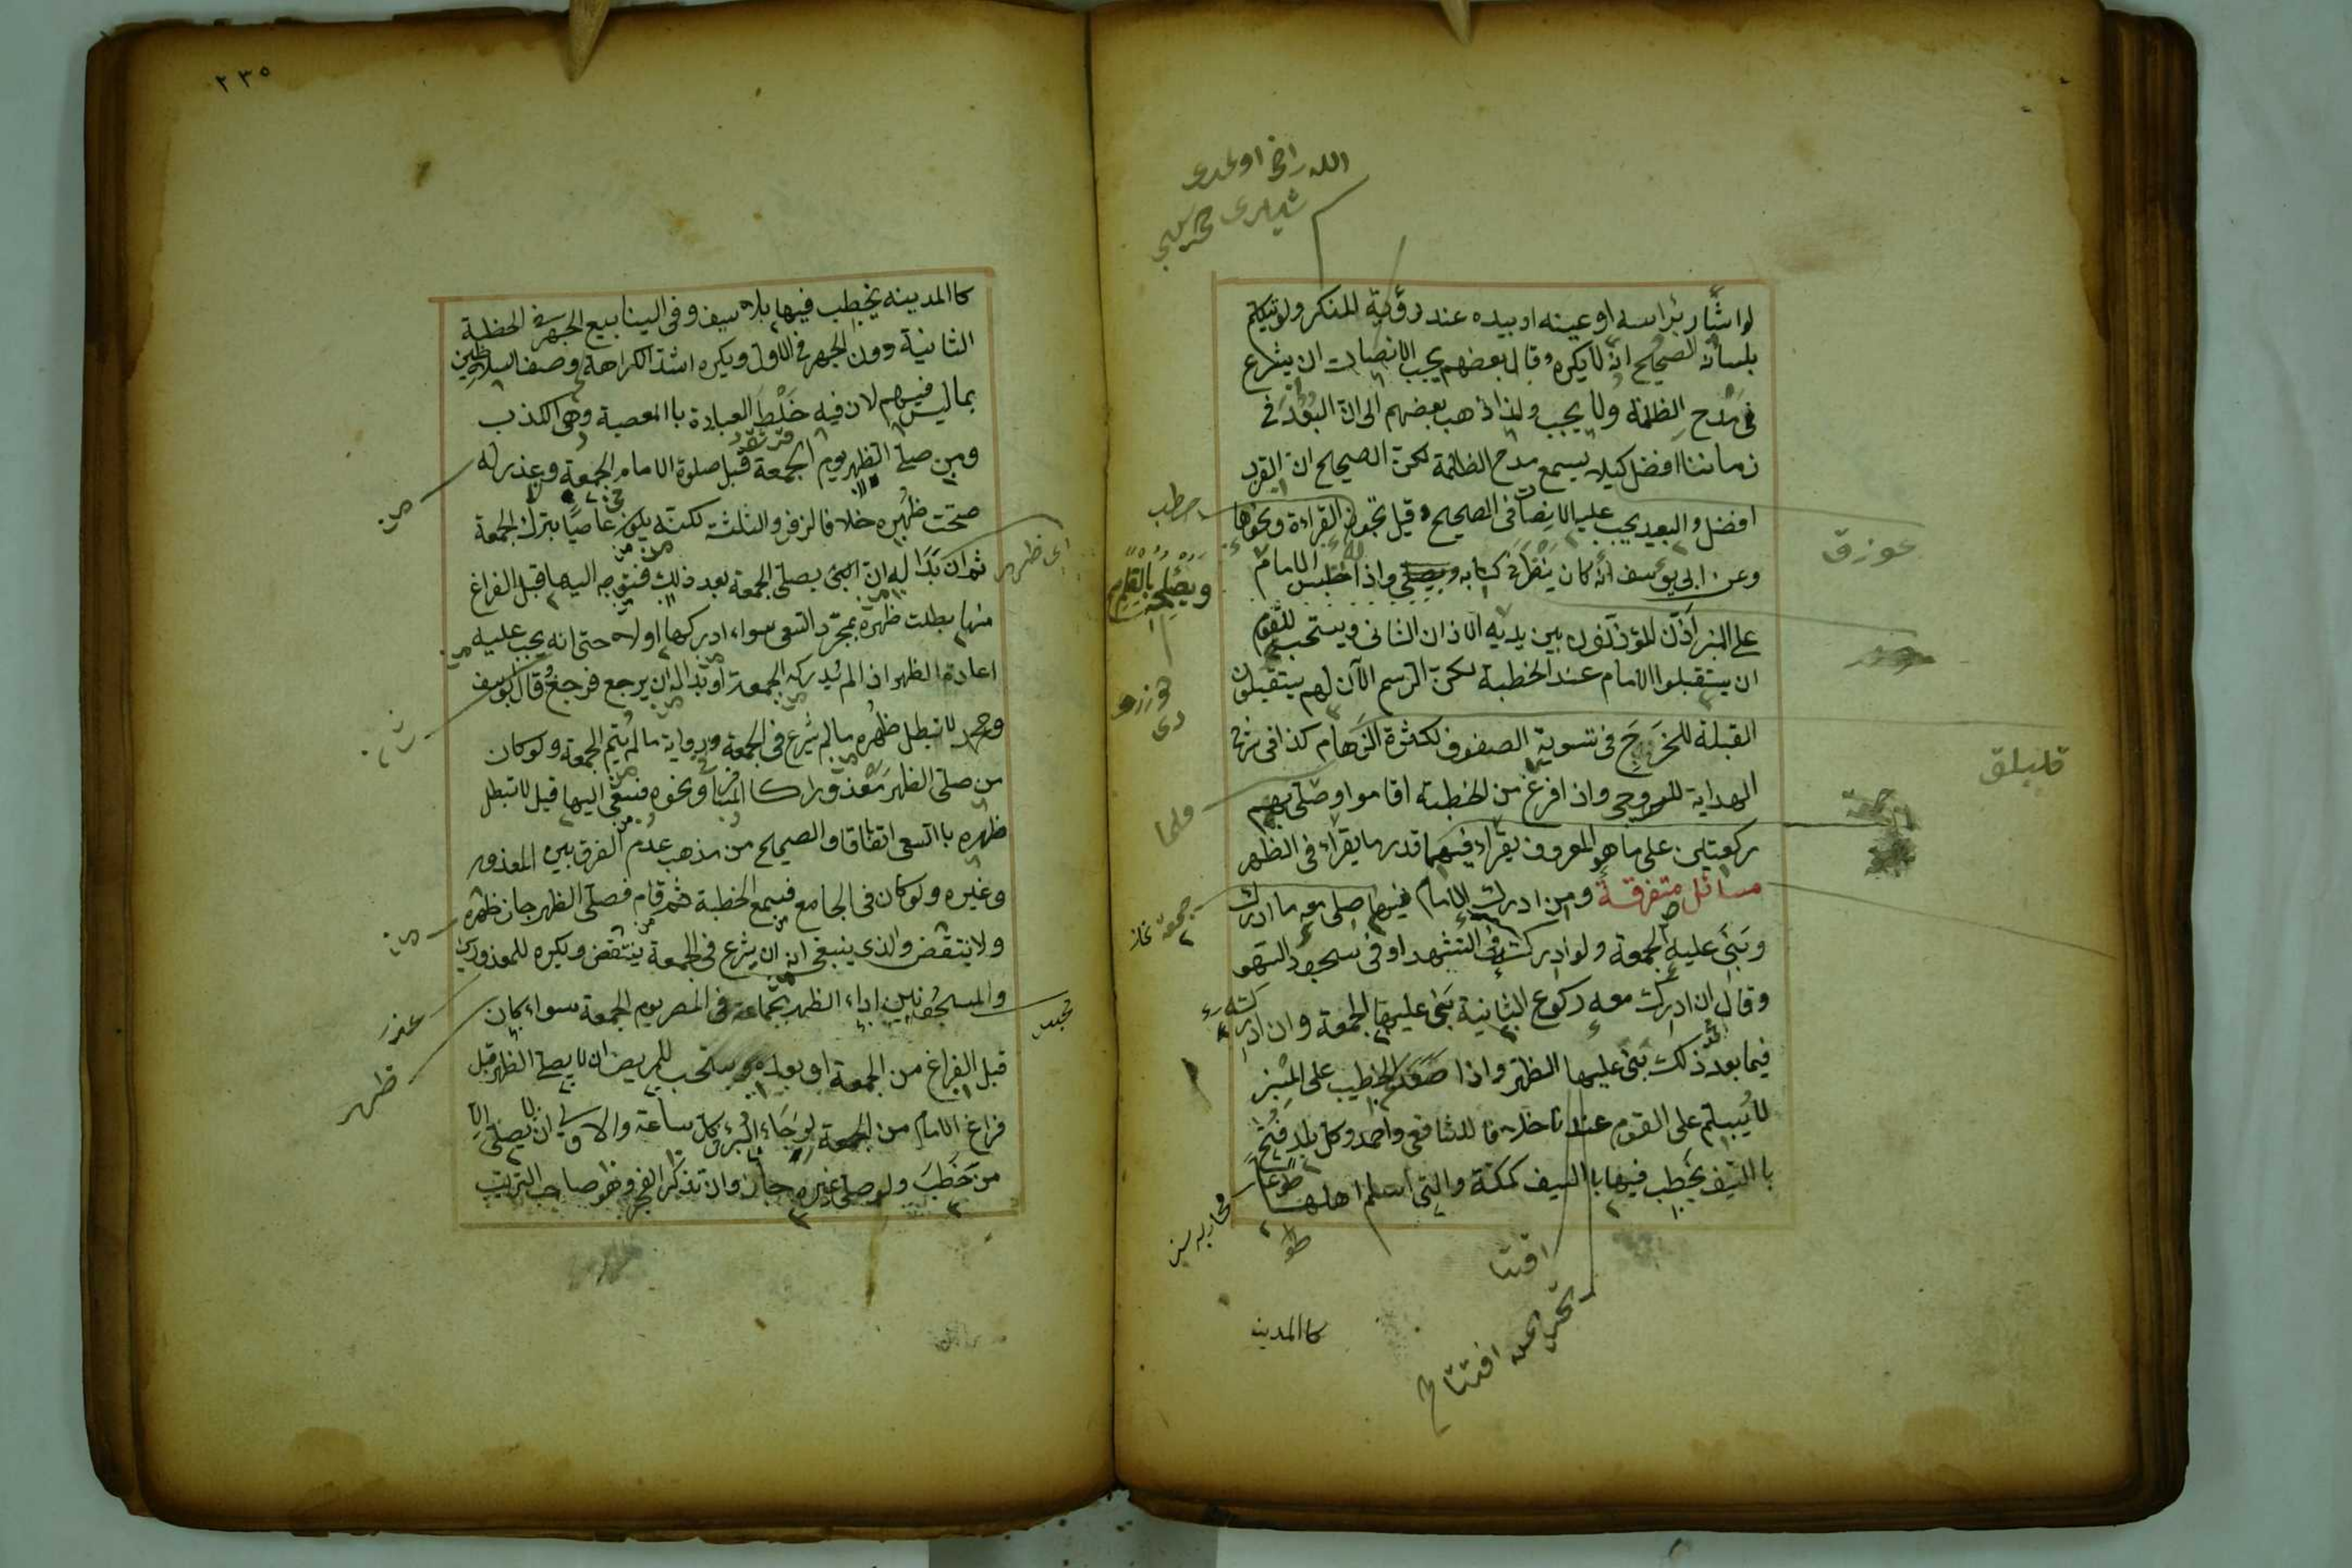 لو اشار برأسه او عينه او بيده عند رؤية المنكر ولم يتكلم
بلسانه الصحيح انه لا يكره وقال بعضهم يجب الانصات ان يشرع
فى مدح الظلمة ولا يجب ولذا ذهب بعضهم الى ان البعد فى
زماننا افضل كيلا يسمع مدح الظلمة لكن الصحيح ان القرب
افضل والبعيد يجب عليه الانصات فى الصحيح وقيل تجوز القراءة ونحوها
وعن ابى يوسف انه كان ينظر فى كتابه ويصلحه بالقلم واذا جلس الامام
على المنبر اذن المؤذنون بين يديه الاذان الثانى ويستحب للقوم
ان يستقبلوا الامام عند الخطبة لكن الرسم الآن انهم يستقبلون
القبلة للحرج فى تسوية الصفوف لكثرة الزحام كذا فى شرح
الهداية للسروجى واذا فرغ من الخطبة اقاموا وصلى بهم
ركعتين على ما هو المعروف يقرأ فيهما قدر ما يقرأ فى الظهر
مسائل متفرقة ومن ادرك الامام فيها صلى معه ما ادرك
وبنى عليه الجمعة ولو ادركه فى التشهد او فى سجود السهو
وقالا ان ادرك معه ركوع الثانية بنى عليها الجمعة وان ادركه
فيما بعد ذلك بنى عليها الظهر واذا صعد الخطيب على المنبر
لا يسلم على القوم عندنا خلافا للشافعى واحمد وكل بلد فتح
بالسيف يخطب فيها بالسيف كمكة والتى اسلم اهلها طوعا
كالمدينه
قليلق
جمعه نماز
افتتاح
٢٣٥
كالمدينه يخطب فيها بلا سيف وفى الينابيع الجهر فى الخطبة
الثانية دون الجهر فى الاولى ويكره اشد الكراهة وصف السلاطين
بما ليس فيهم لان فيه خلط العبادة بالمعصية وهى الكذب
ومن صلى الظهر يوم الجمعة قبل صلوة الامام الجمعة ولا عذر له
صحت ظهره خلافا لزفر والثلثة لكنه يكون عاصيا بترك الجمعة
ثم ان بدا له ان يصلى الجمعة بعد ذلك فتوجه اليها قبل الفراغ
منها بطلت ظهره بمجرد السعى سواء ادركها اولا حتى انه يجب عليه
اعادة الظهر اذا لم يدرك الجمعة او بدا له ان يرجع فرجع وقال ابو يوسف
ومحمد لا تبطل ظهره ما لم يشرع فى الجمعة وفى رواية ما لم يتم الجمعة ولو كان
من صلى الظهر معذورا كالمسافر ونحوه فسعى اليها قيل لا تبطل
ظهره بالسعى اتفاقا والصحيح من مذهب عدم الفرق بين المعذور
وغيره ولو كان فى الجامع فسمع الخطبة ثم قام فصلى الظهر جاز ظهره
ولا ينتقض والذى ينبغى انه ان يشرع فى الجمعة ينتقض ويكره للمعذورين
والمسجونين اداء الظهر بجماعة فى المصر يوم الجمعة سواء كان
قبل الفراغ من الجمعة او بعده ويستحب للمريض ان لا يصلى الظهر قبل
فراغ الامام من الجمعة لرجاء البرء كل ساعة والاولى ان لا يصلى الا
من خطب ولو صلى غيره جاز وان تذكر الفجر وهو صاحب الترتيب
اى ظهر
عذر
ظهر